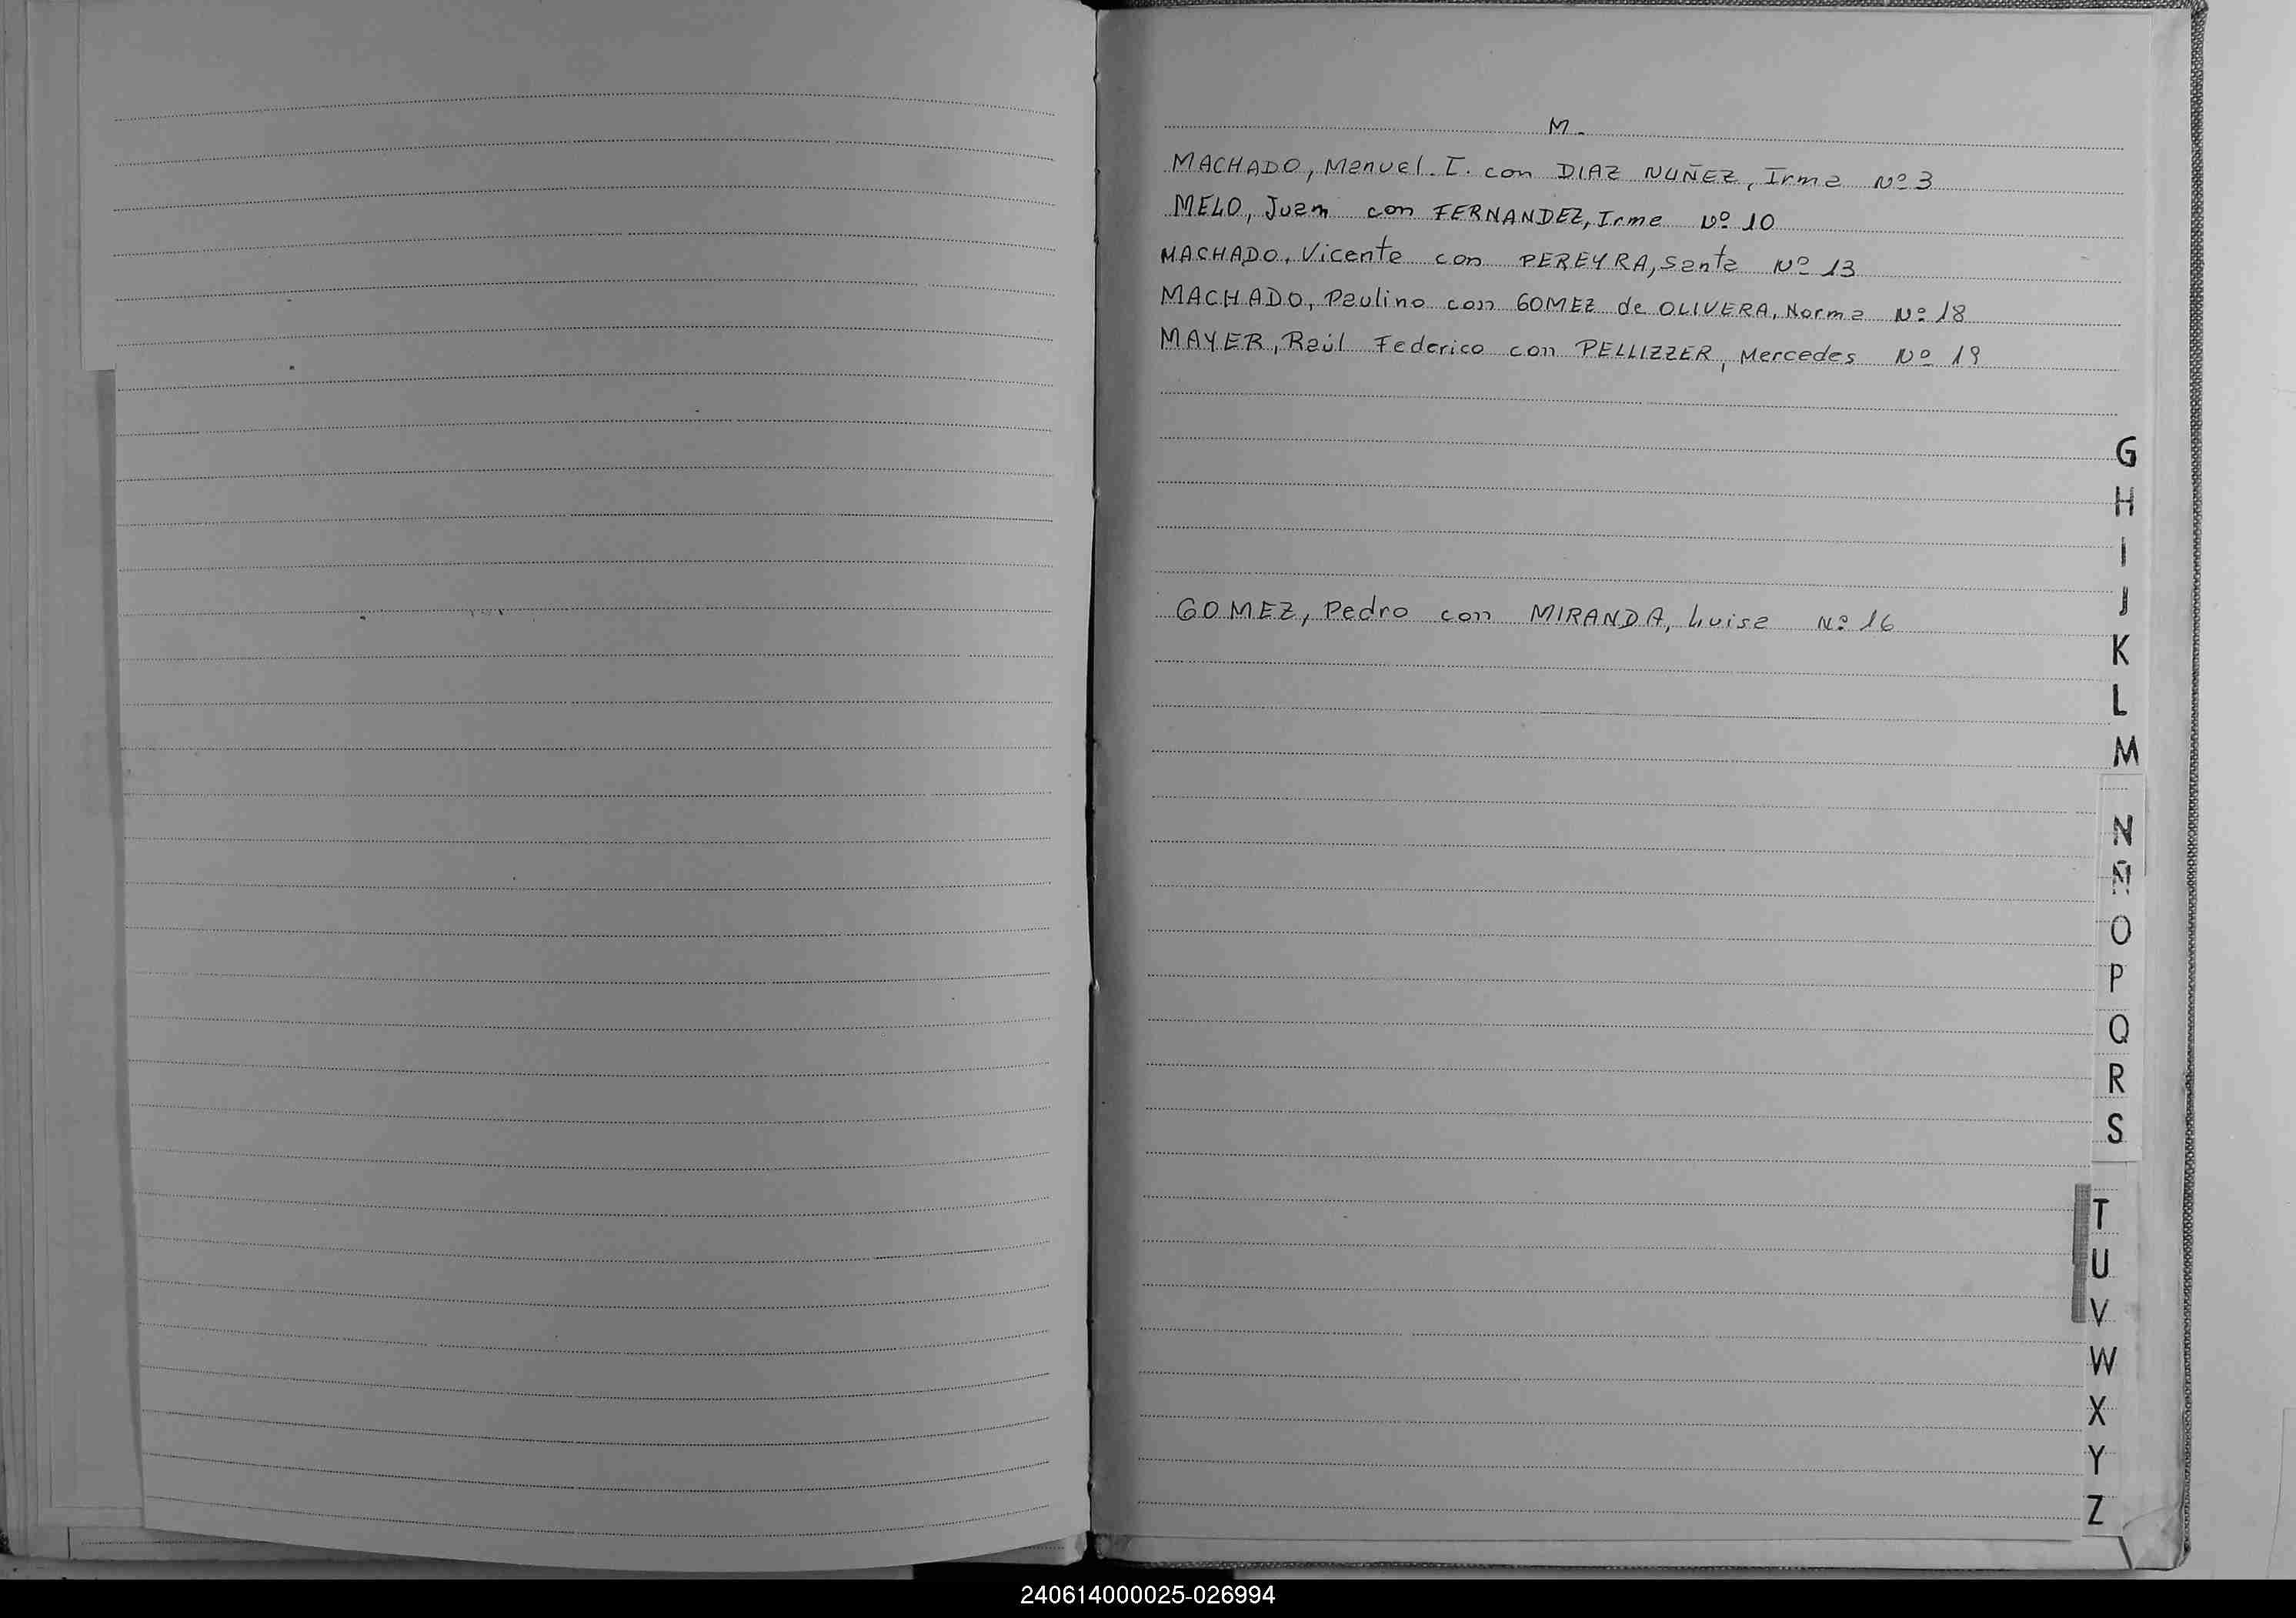 M.
MACHADO, Manuel. I. con DIAZ NUÑEZ, Irma Nº 3
MELO, Juan con FERNANDEZ, Irma Nº 10
MACHADO, Vicente con PEREYRA, Santa Nº 13
MACHADO, Paulino con GOMEZ de OLIVERA, Norma Nº 18
MAYER, Raúl Federico con PELLIZZER, Mercedes Nº 19
GOMEZ, Pedro con MIRANDA, Luisa Nº 16
G
H
I
J
K
L
M
N
Ñ
O
P
Q
R
S
T
U
V
W
X
Y
Z
240614000025-026994